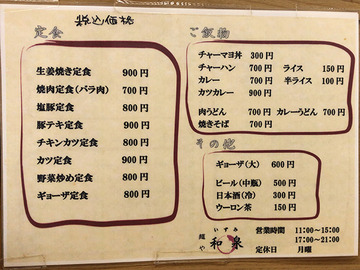 税込価格
定食
生姜焼き定食 900円
焼肉定食(バラ肉) 700円
塩豚定食 800円
豚テキ定食 900円
チキンカツ定食 800円
カツ定食 900円
野菜炒め定食 800円
ギョーザ定食 800円
ご飯物
チャーマヨ丼 300円
チャーハン 700円 ライス 150円
カレー 700円 半ライス 100円
カツカレー 900円
肉うどん 700円 カレーうどん 700円
焼きそば 700円
その他
ギョーザ(大) 600円
ビール(中瓶) 500円
日本酒(冷) 300円
ウーロン茶 150円
麺や 和泉 いずみ
営業時間 11:00~15:00
17:00~21:00
定休日 月曜